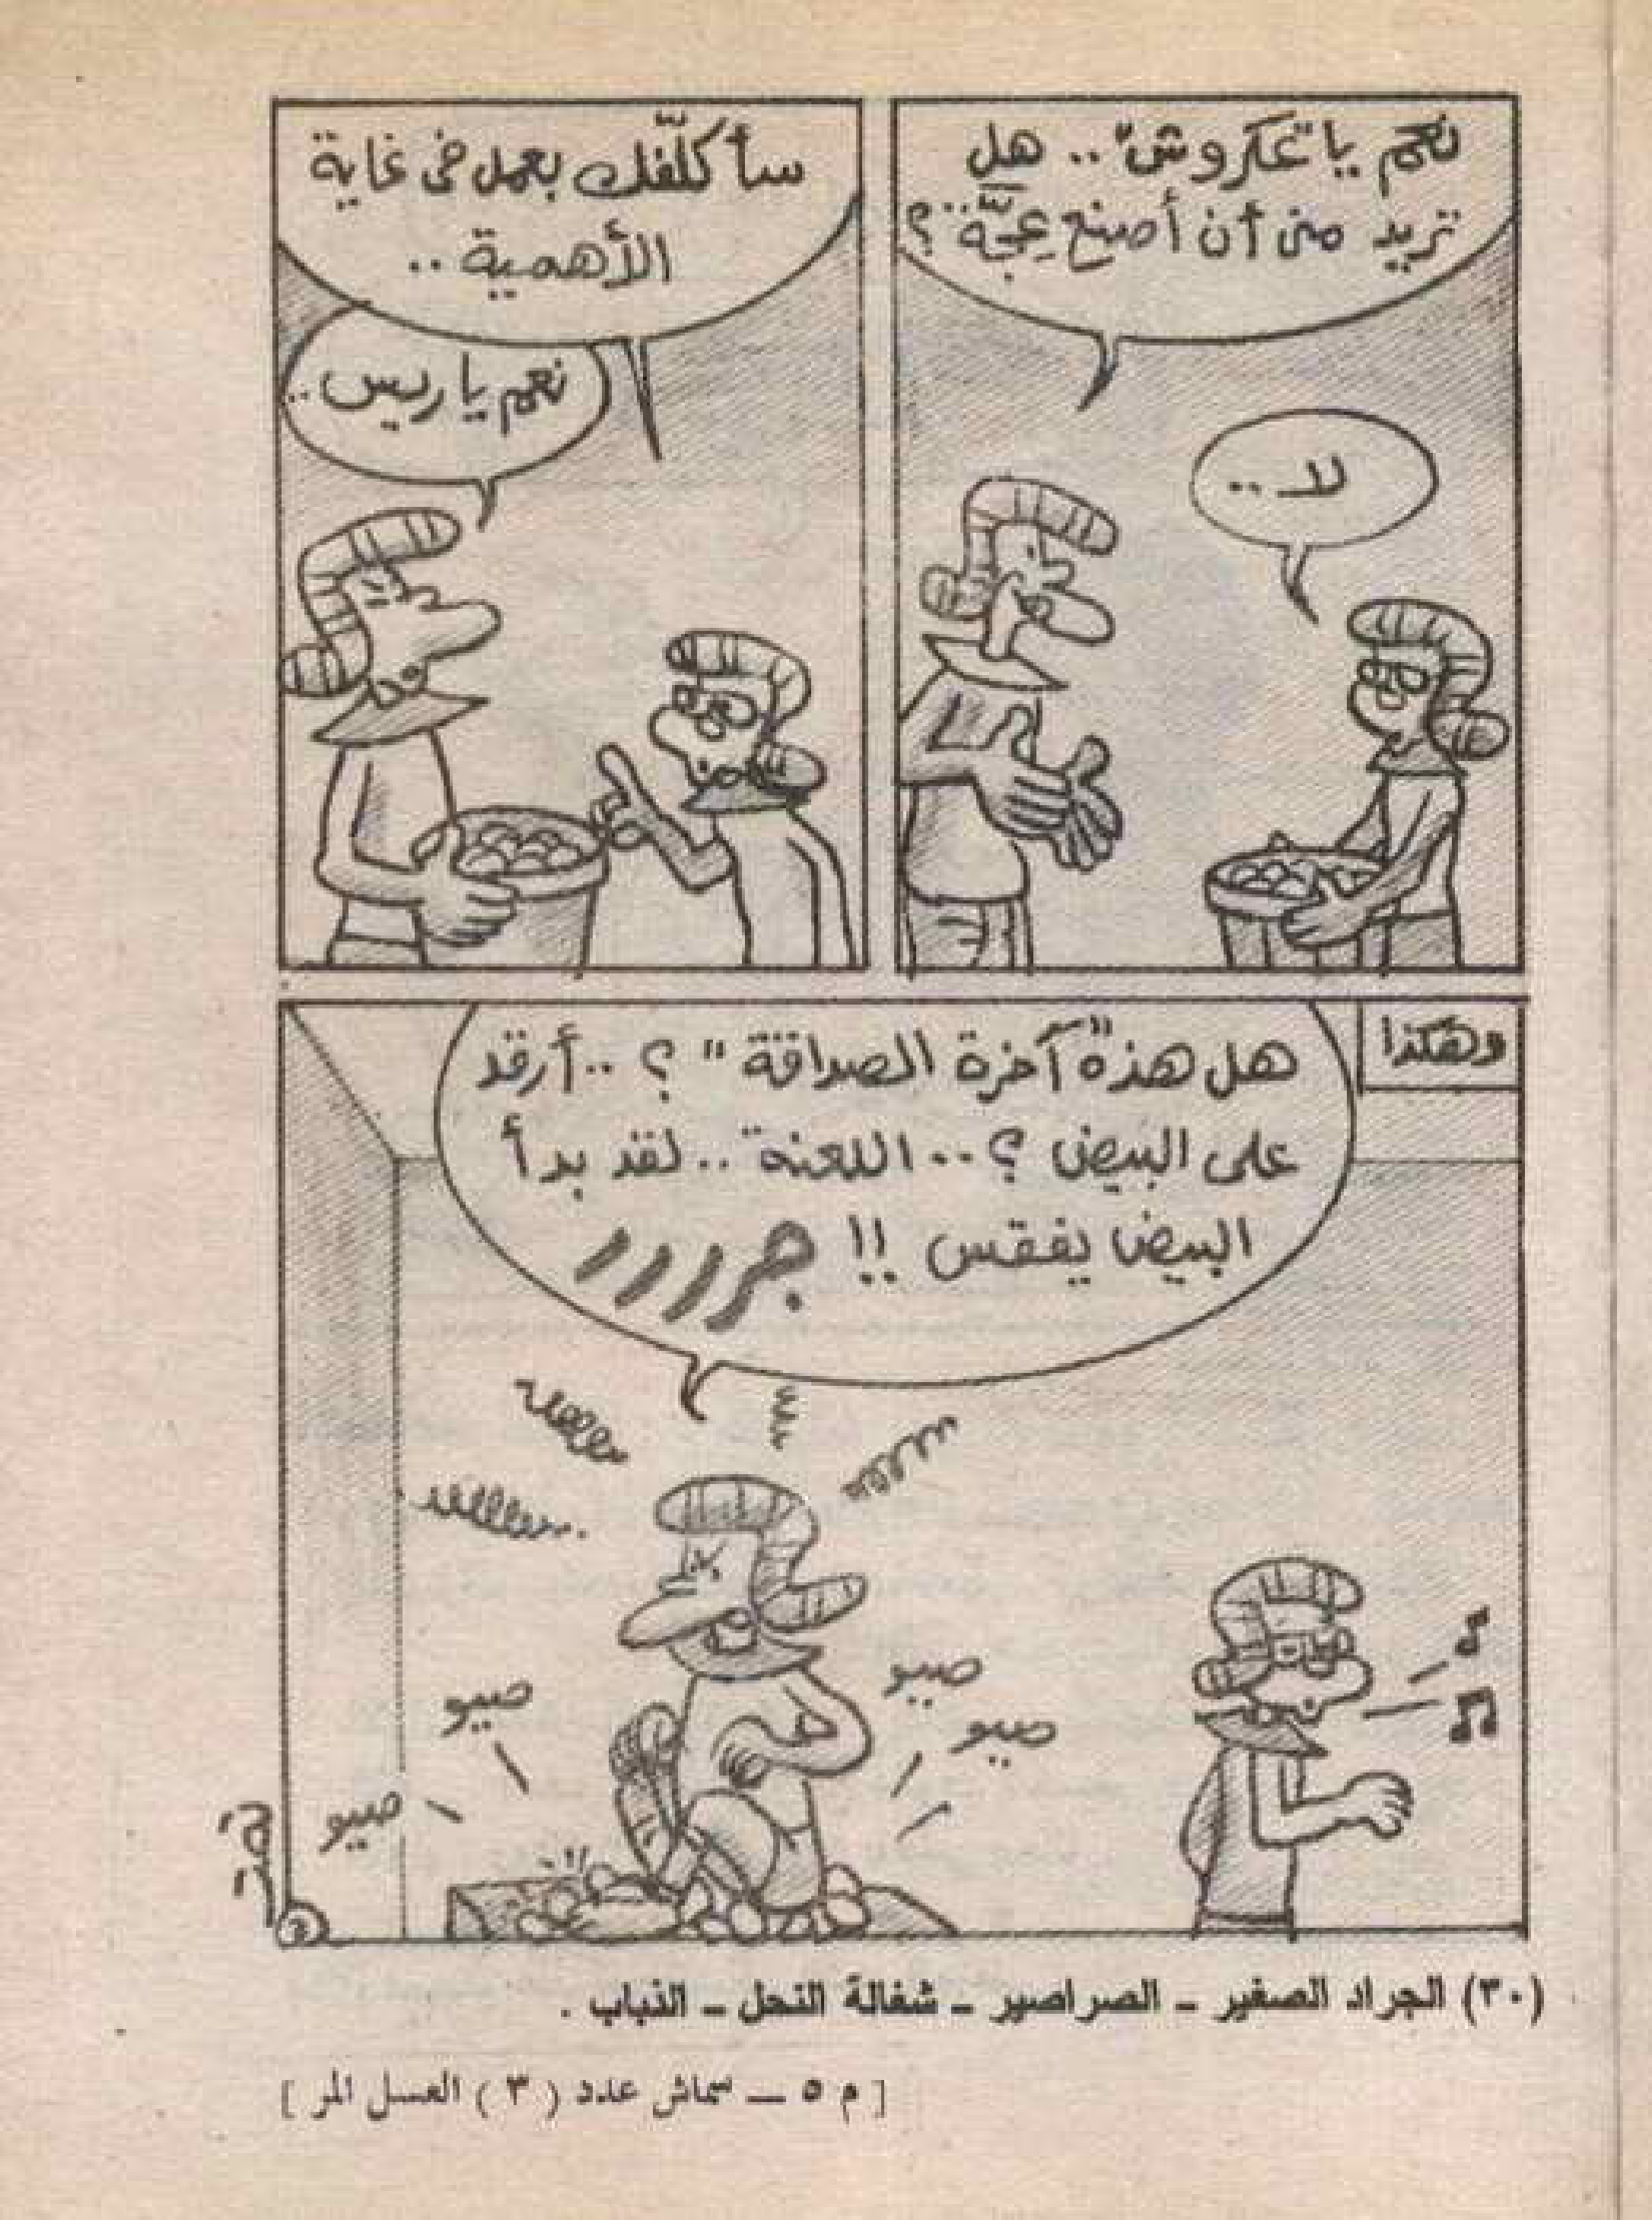 نعم يا "عكروش" .. هل
تريد منى أن أصنع عِجَّة .. ؟
لا ..
سأكلّفك بعمل فى غاية
الأهمية ..
نعم يا ريس ..
وهكذا
هل هذه "آخرة الصداقة" ؟ .. أرقد
على البيض ؟ .. اللعنة .. لقد بدأ
البيض يفقس !! جرررر
صيو
صيو
صيو
صيو
تمت
(٣٠) الجراد الصغير ــ الصراصير ــ شغالة النحل ــ الذباب .
[ م ٥ ــ سماش عدد ( ٣ ) العسل المر ]